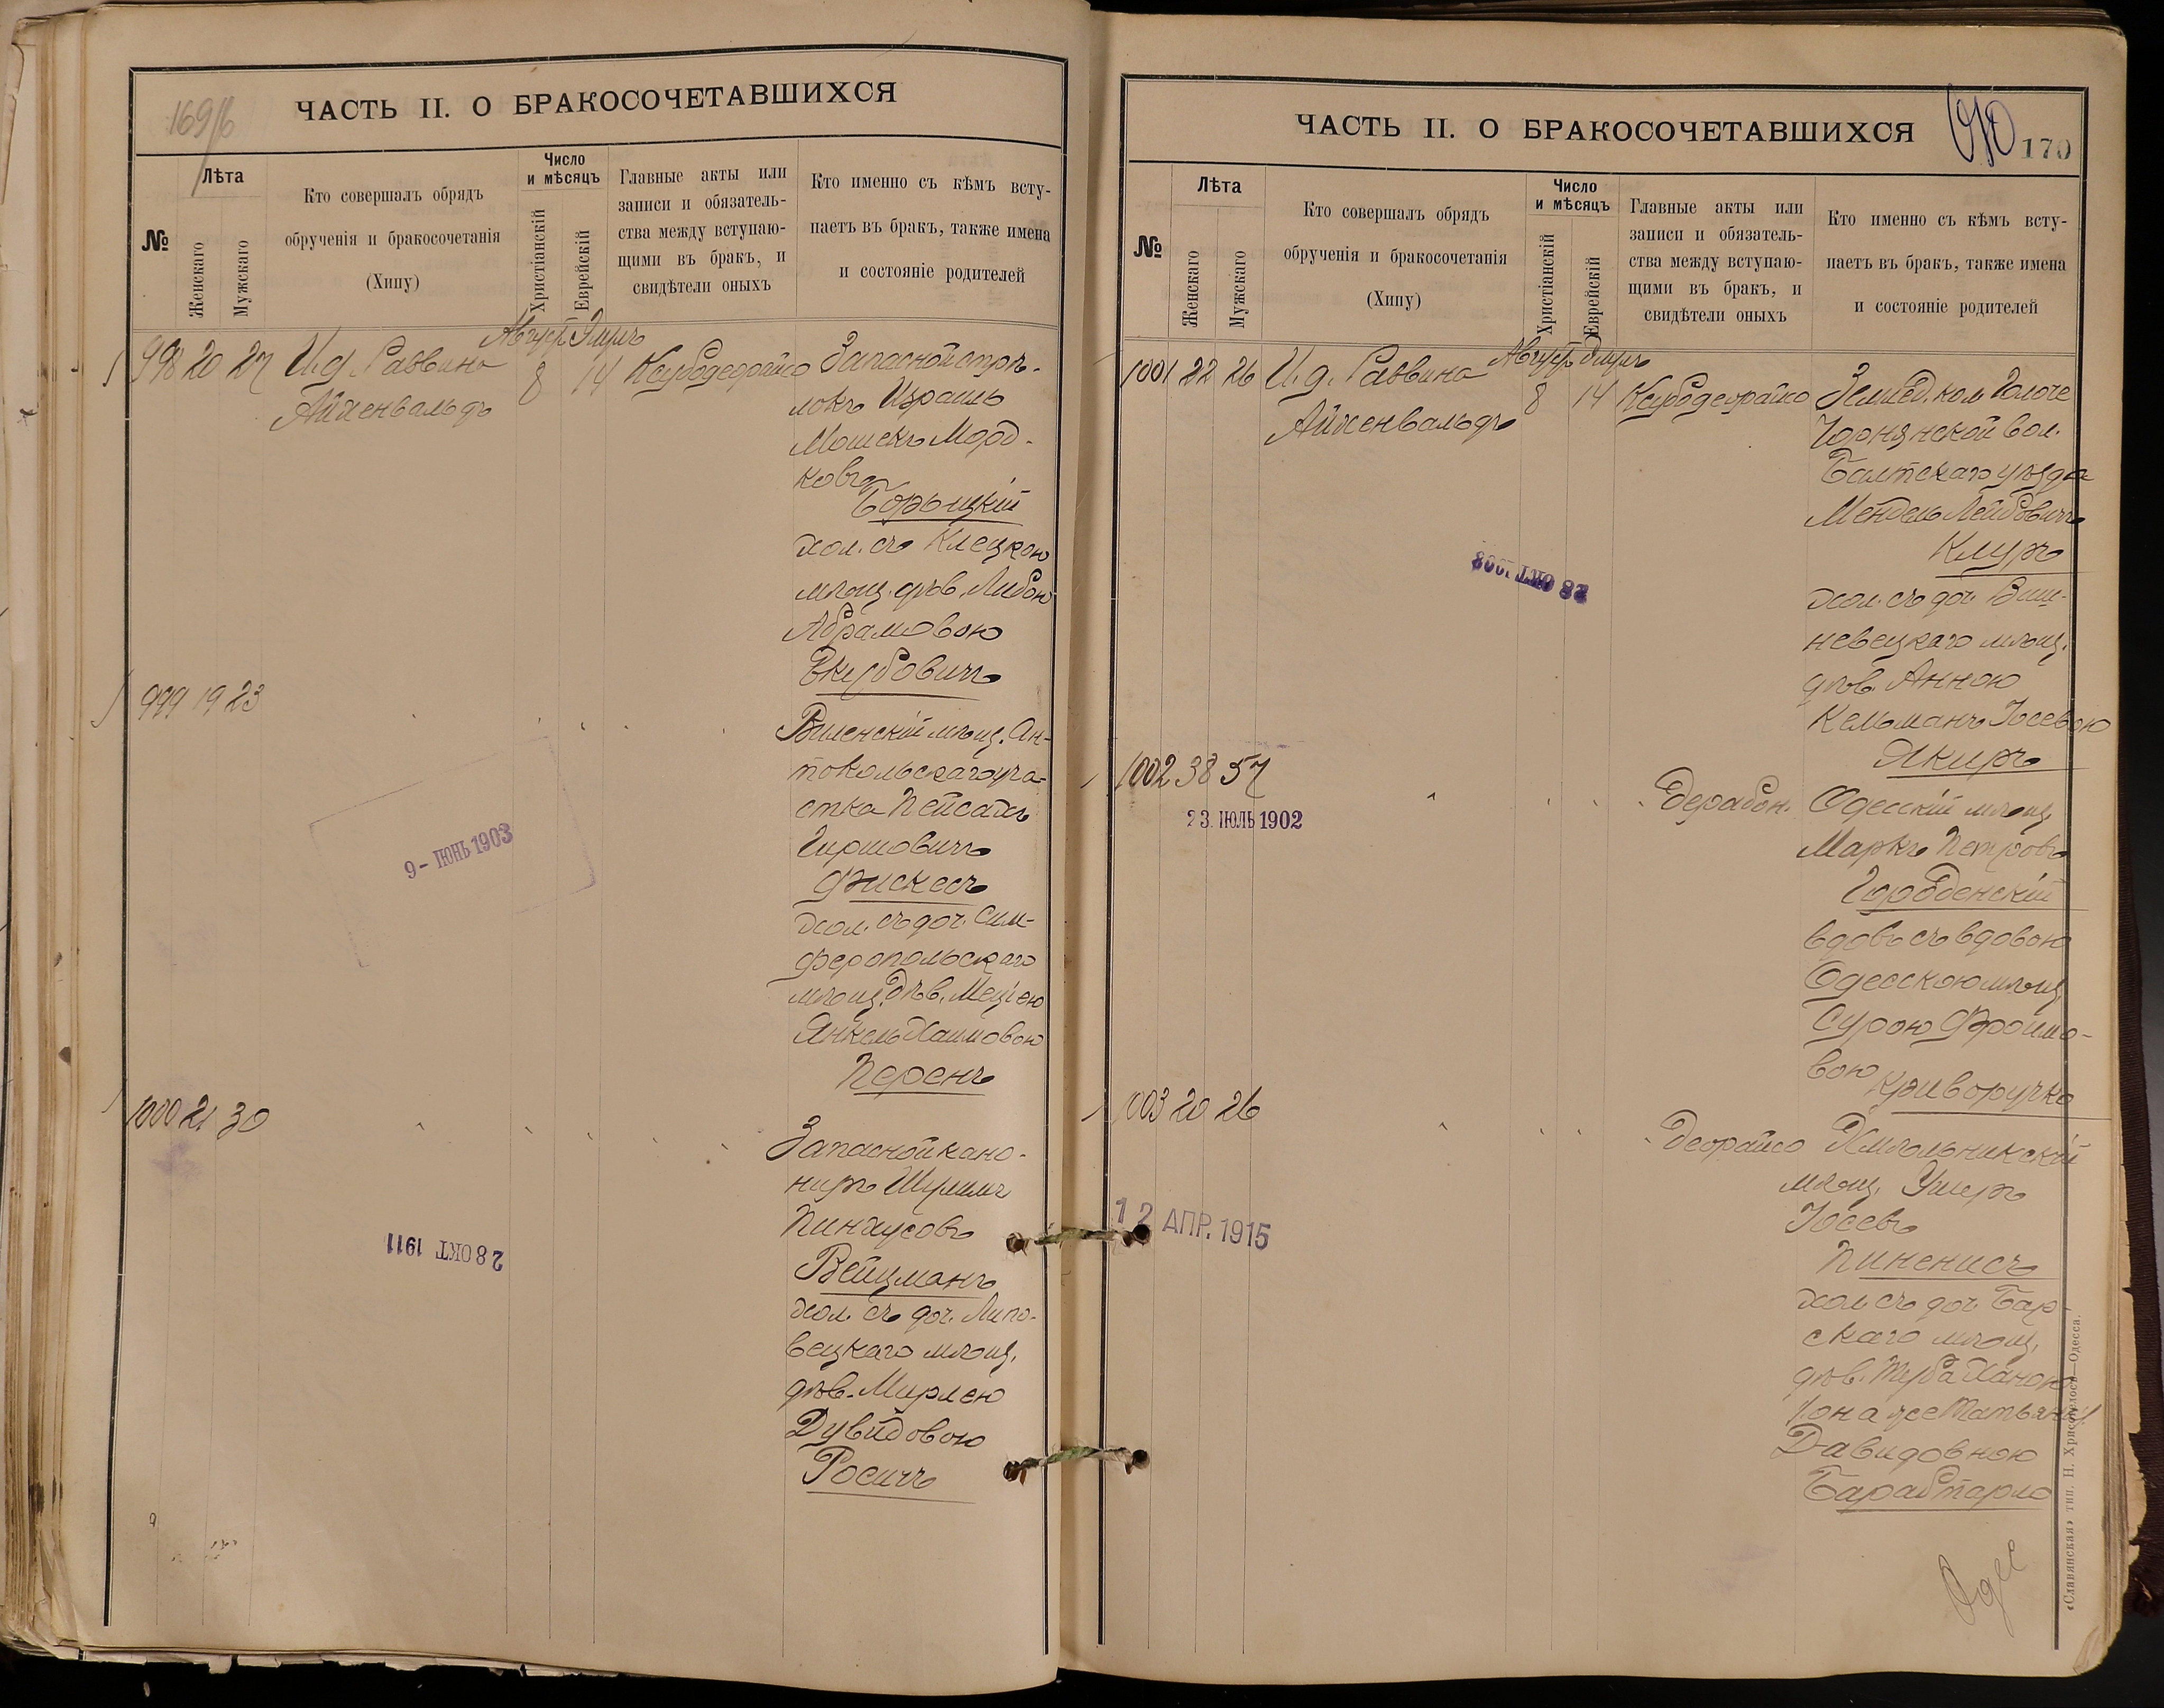 169/б
ЧАСТЬ II. О БРАКОСОЧЕТАВШИХСЯ
№
Лѣта
Женскаго
Мужскаго
Кто совершалъ обрядъ
обрученія и бракосочетанія
(Хипу)
Число
и мѣсяцъ
Христіанскій
Еврейскій
Главные акты или
записи и обязатель-
ства между вступаю-
щими въ бракъ, и
свидѣтели оныхъ
Кто именно съ кѣмъ всту-
паетъ въ бракъ, также имена
и состояніе родителей
998 20 27 И.д. Раввина
Айхенвальдъ
Август. Элулъ
8 14 Ксубодеорайсо
Запасной стрѣ-
локъ Израиль
Мошекъ Морд-
ковъ
Борыцкій
хол. съ Клецкою
мѣщ. дѣв. Либою
Абрамовою
Якубовичъ
999 19 23
9 - ІЮНЬ 1903
Виленскій мѣщ. Ан-
токольскаго уча-
стка Пейсахъ
Гиршовичъ
Фискесъ
хол. съ доч. Сим-
феропольскаго
мѣщ. дѣв. Меціею
Янкель Хаимовою
Перенъ
1000 21 30
28 ОКТ 1911
Запасной кано-
ниръ Шулимъ
Пинхусовъ
Вейцманъ
хол. съ доч. Липо-
вецкаго мѣщ.
дѣв. Мирлею
Дувидовою
Росичъ
ЧАСТЬ II. О БРАКОСОЧЕТАВШИХСЯ
170
№
Лѣта
Женскаго
Мужскаго
Кто совершалъ обрядъ
обрученія и бракосочетанія
(Хипу)
Число
и мѣсяцъ
Христіанскій
Еврейскій
Главные акты или
записи и обязатель-
ства между вступаю-
щими въ бракъ, и
свидѣтели оныхъ
Кто именно съ кѣмъ всту-
паетъ въ бракъ, также имена
и состояніе родителей
1001 22 26 И.д. Раввина
Айхенвальдъ
Август. Элулъ
8 14 Ксубодеорайсо
28 ОКТ
Землед. кол.
вол.
Балтскаго уѣзда
Мендель Лейбовичъ
Клугъ
хол. съ доч. Виш-
невецкаго мѣщ.
дѣв. Анною
Кельманъ Іосевою
Якиръ
1002 38 57
23 ІЮЛЬ 1902
Дерабон.
Одесскій мѣщ.
Маркъ Петровъ
вдовъ съ вдовою
Одесскою мѣщ.
Сурою Фроимо-
вою
Криворучко
1003 20 26
12 АПР. 1915
Деорайсо
Хмѣльникскій
мѣщ. Ушеръ
Іосевъ
Пиненисъ
хол. съ доч. Бар-
скаго мѣщ.
дѣв. Туба Ханою
/она же Татьяна/
Давидовною
Барабтарло
«Славянская» тип. Н. Хрисогелосъ—Одесса.